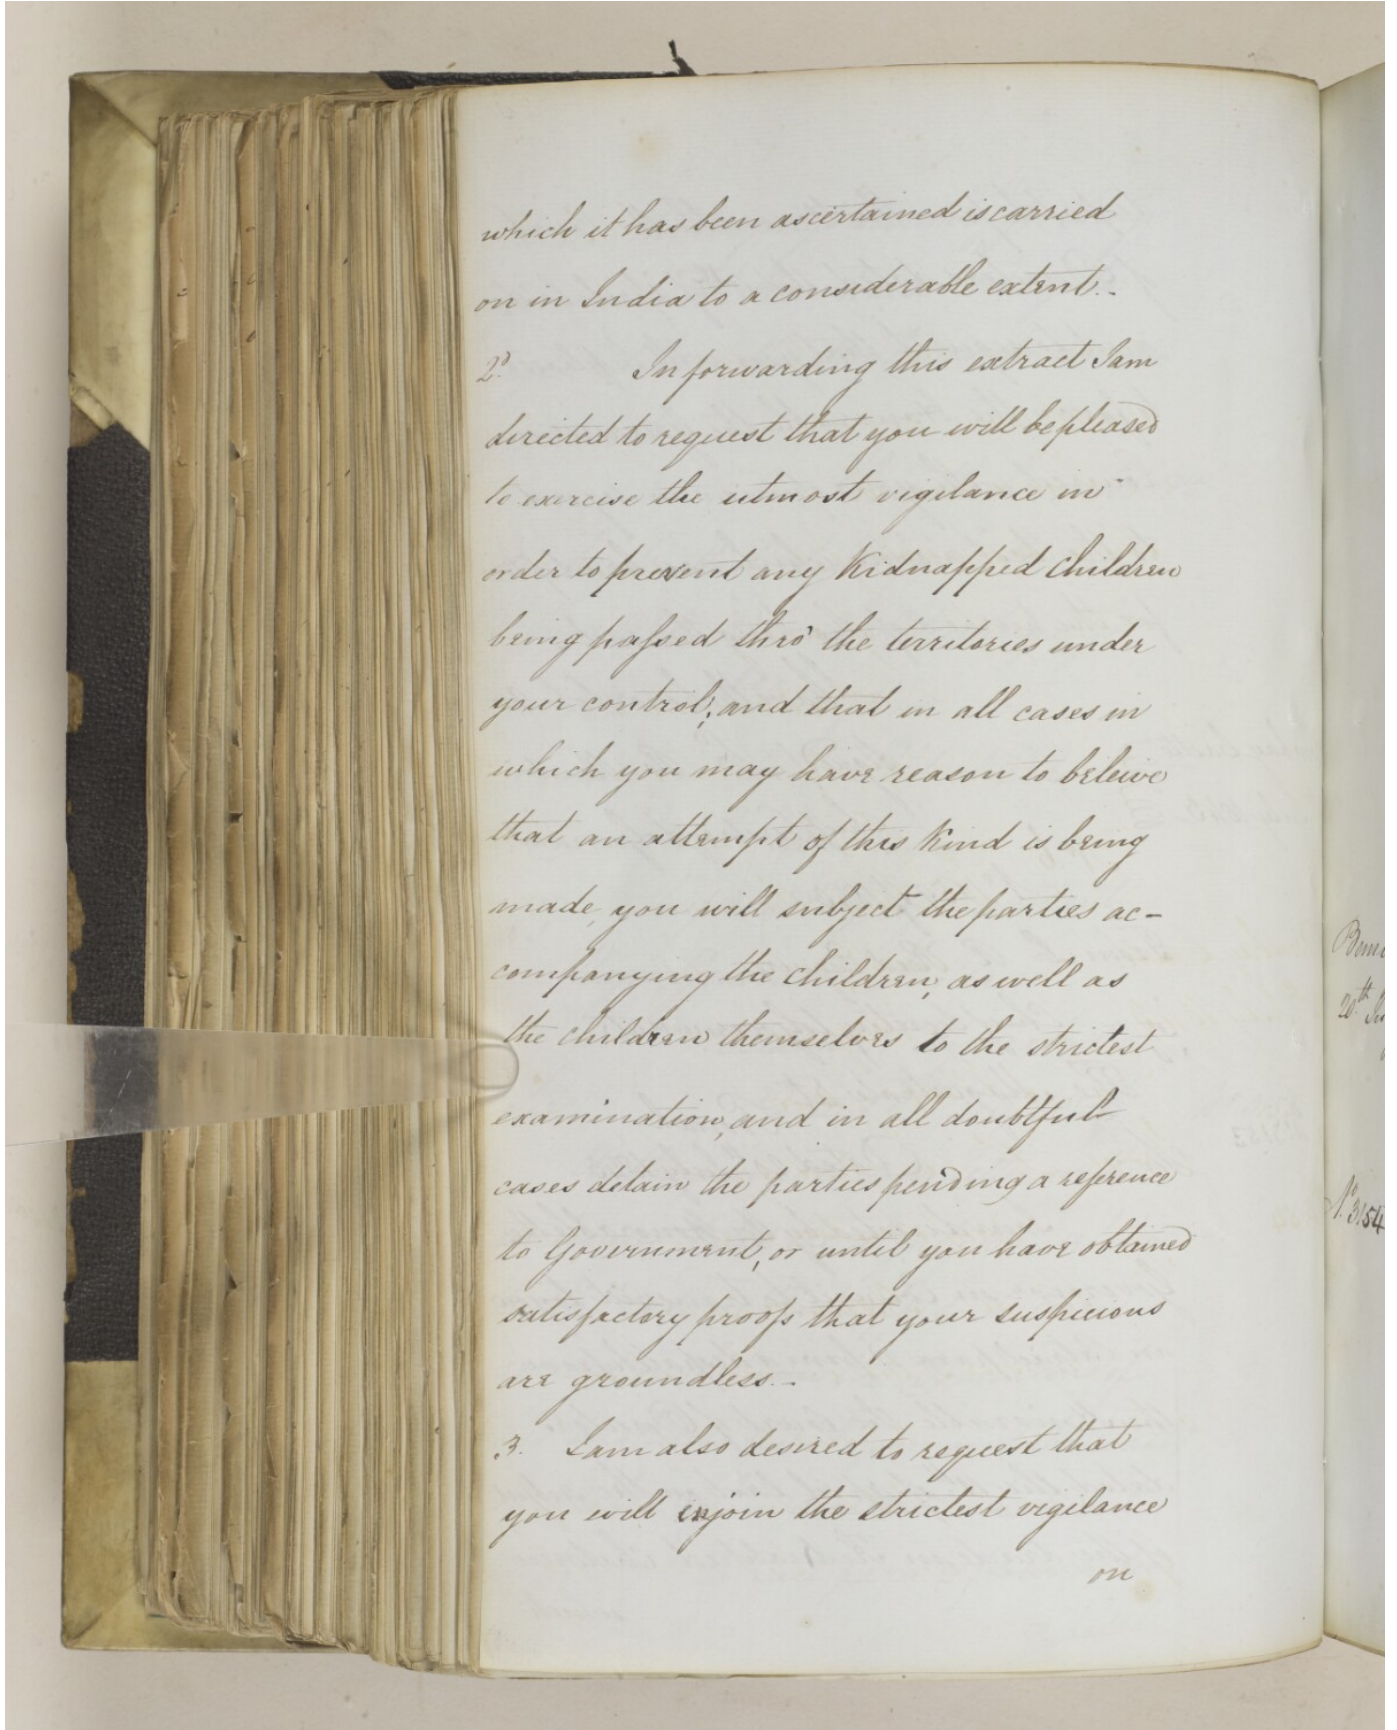 which it has been ascertained is carried
on in India to a considerable extent.-
2d. In forwarding this extract I am
directed to request that you will be pleased
to exercise the utmost vigilance in
order to prevent any Kidnapped Children
being passed thro' the territories under
your control; and that in all cases in
which you may have reason to beleive
that an attempt of this Kind is being
made, you will subject the parties ac-
companying the Children, as well as
the Children themselves to the strictest
examination, and in all doubtful
cases detain the parties pending a reference
to Government, or until you have obtained
satisfactory proofs that your suspicions
are groundless.-
3. I am also desired to request that
you will enjoin the strictest vigilance
on
20th
No. 3154